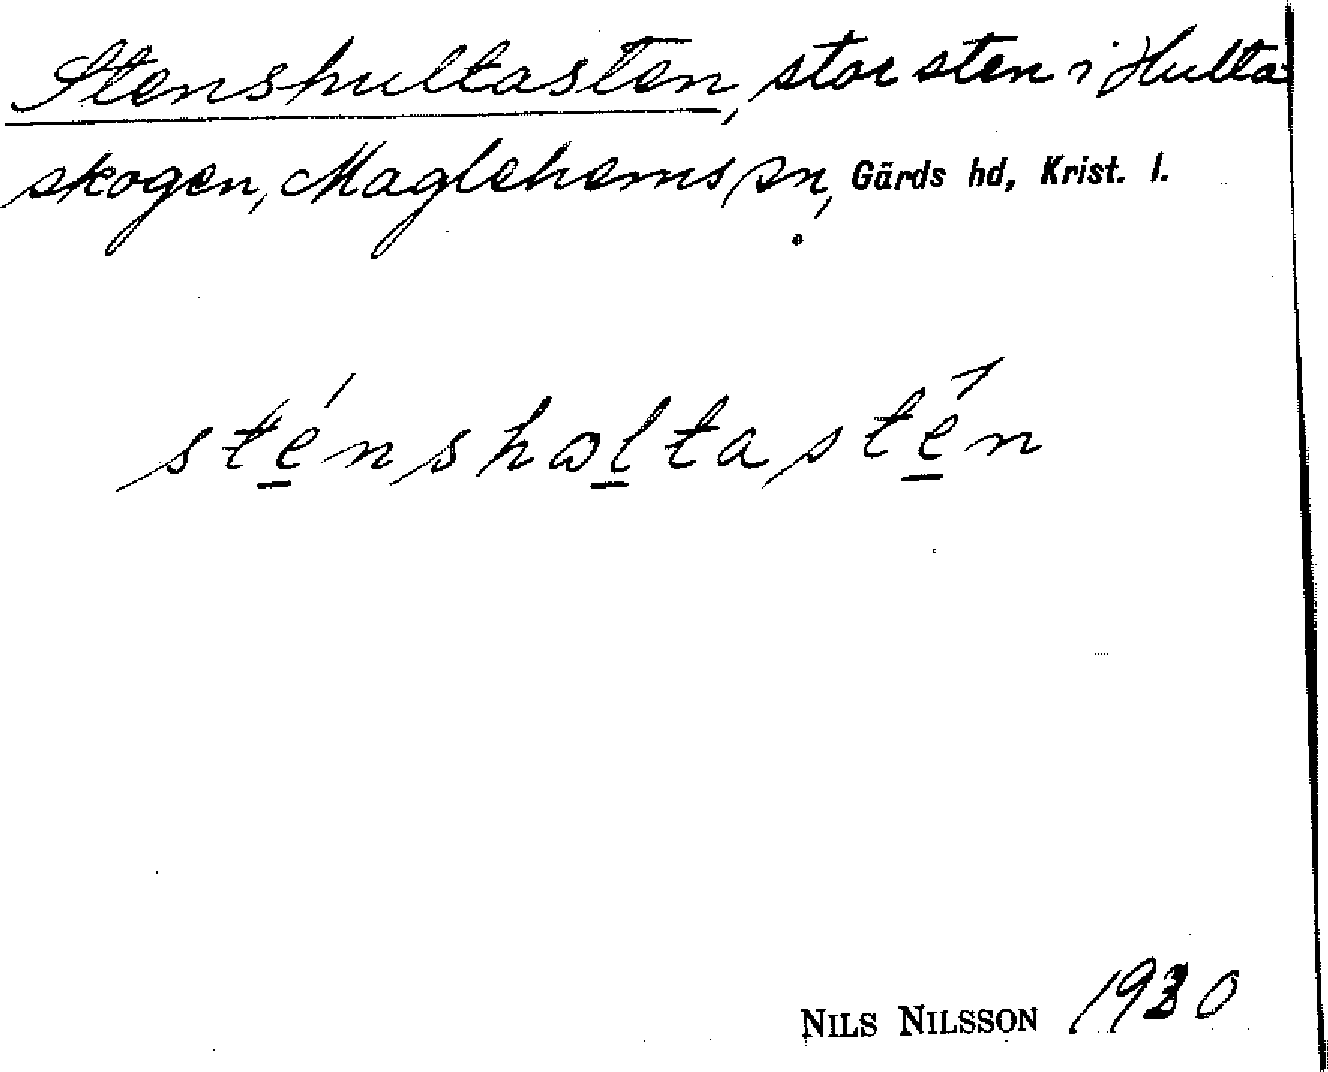 Stenshultasten, stor sten i Hulta
skogen, Maglehems sn, Gärds hd, Krist. l.
sténshωltastén
NILS NILSSON 1930